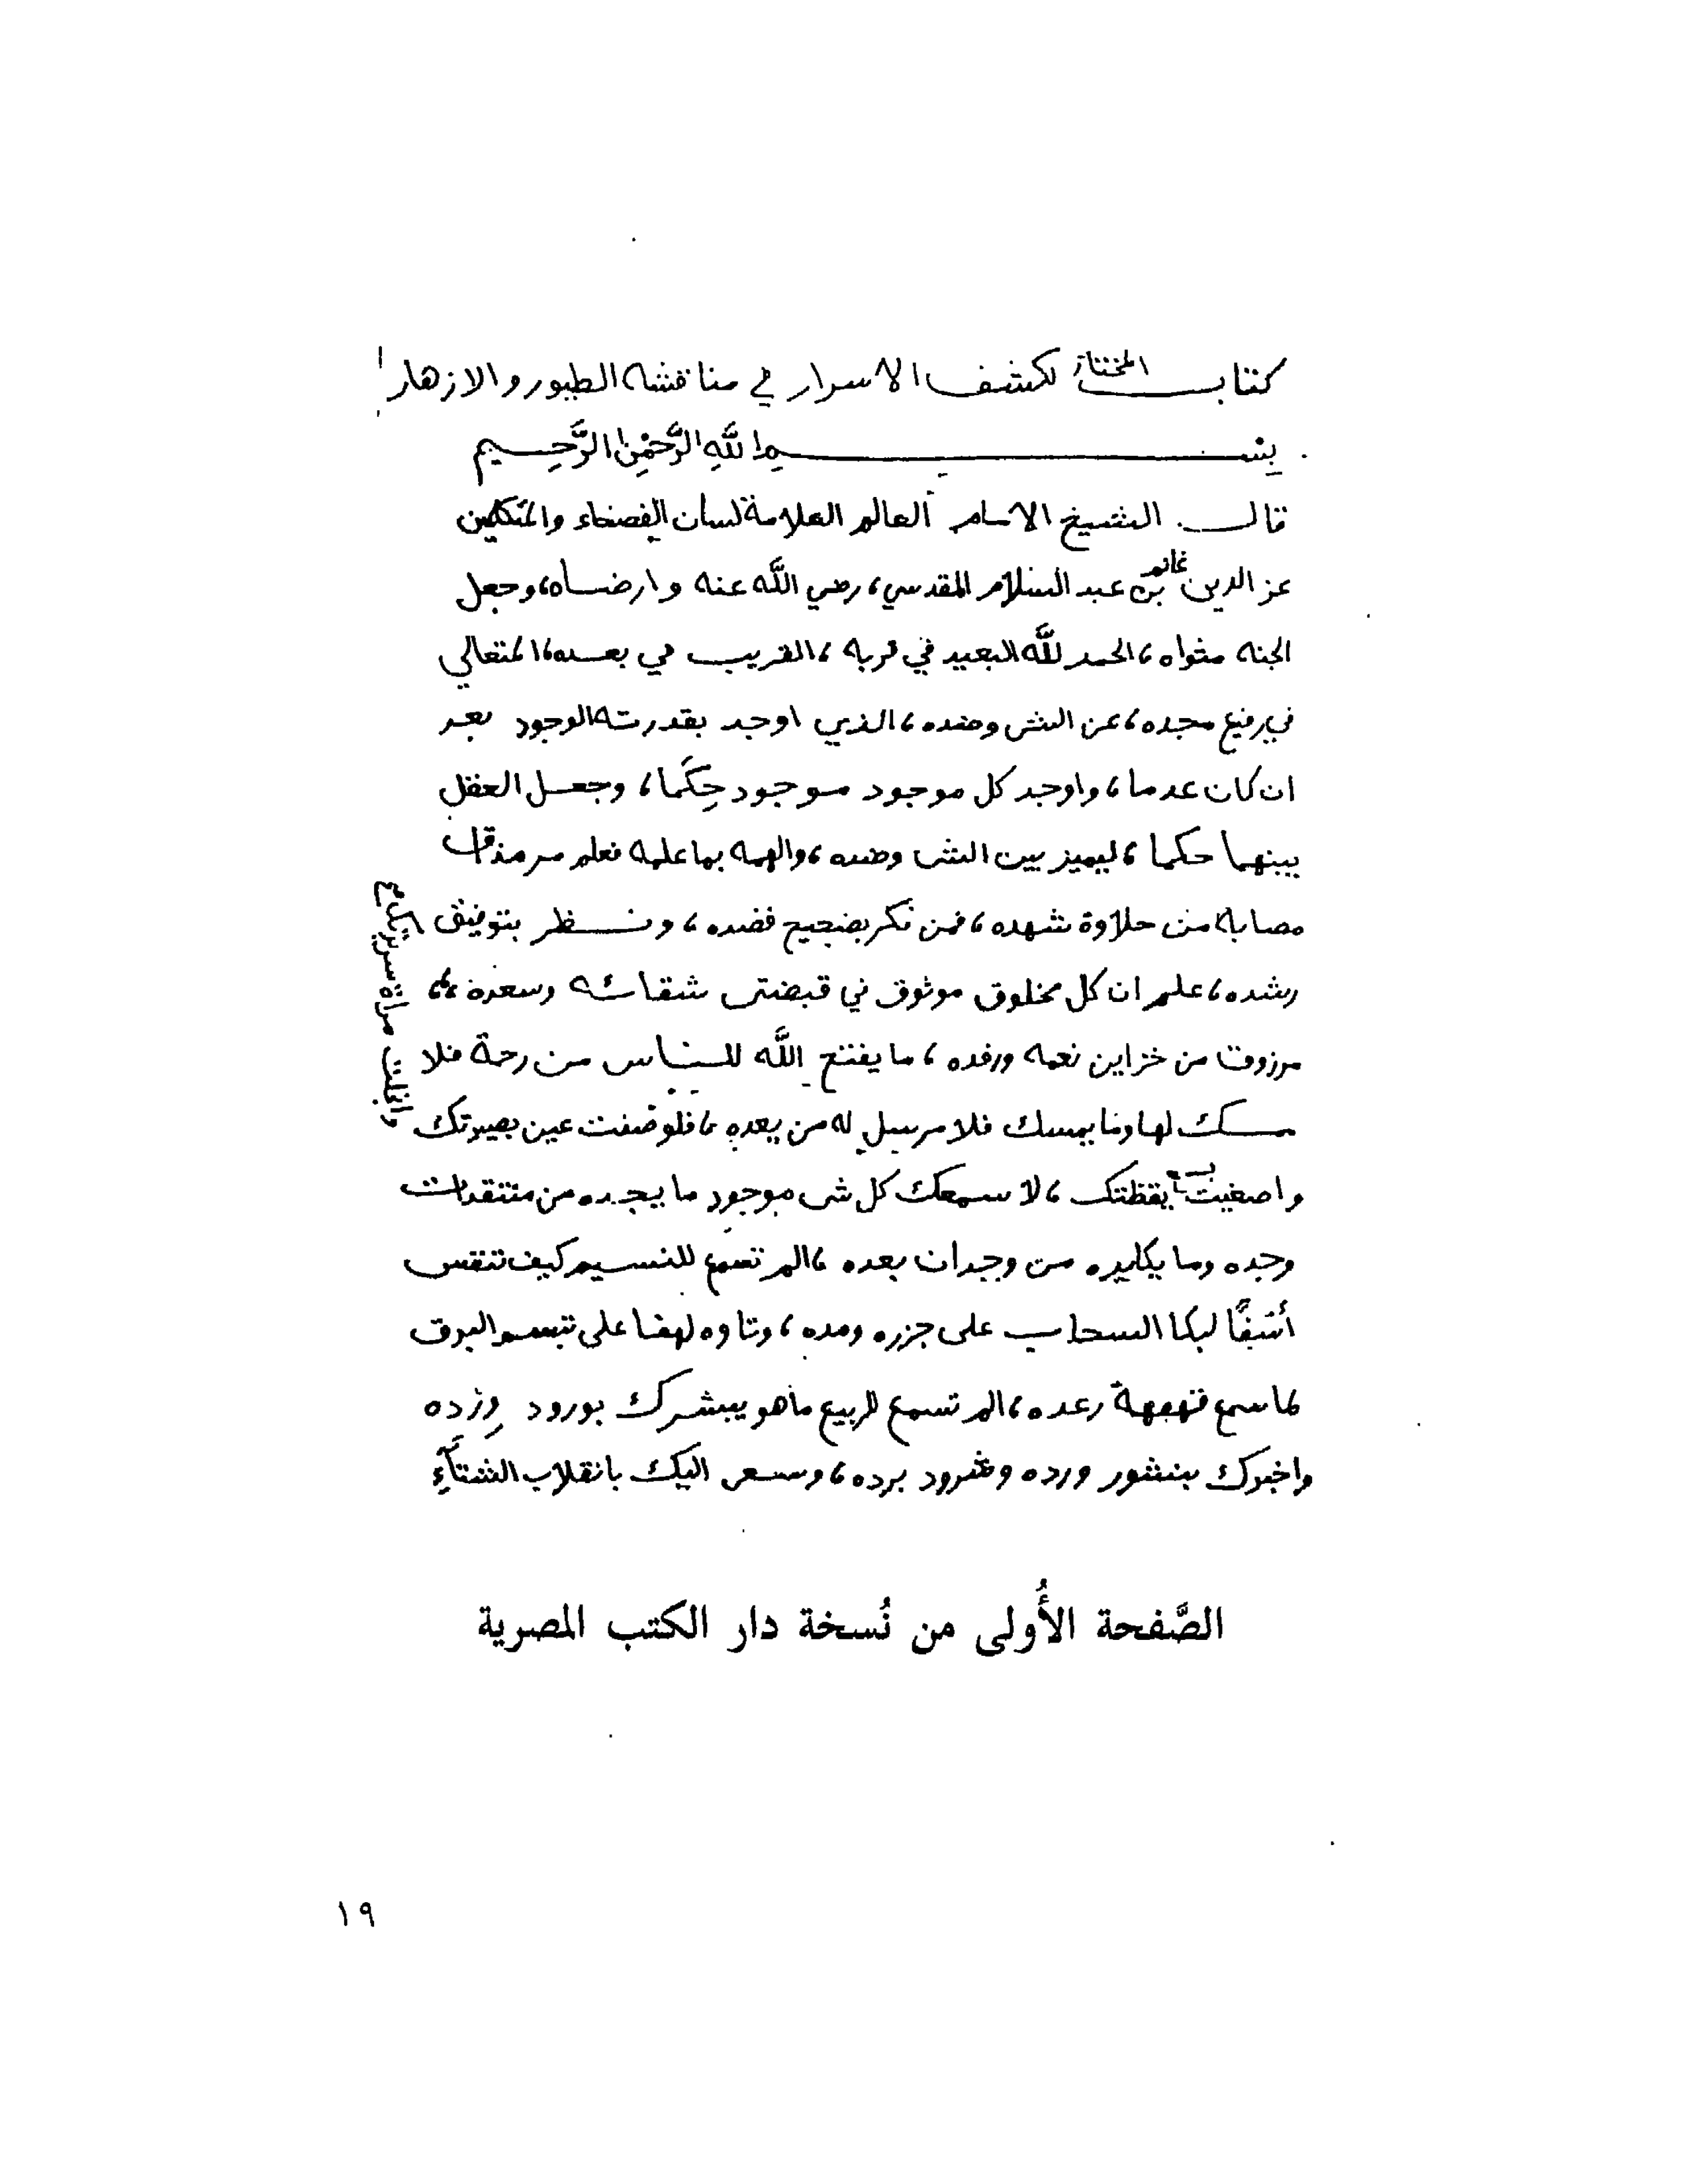 كتاب المختار لكشف الاسرار في مناقشه الطيور والازهار
بسم الله الرَّحمٰن الرَّحيم
قال الشيخ الامام العالم العلامة لسان الفصحاء والمتكلمين
عز الدين بن غانم عبد السلام المقدسي، رضي اللّه عنه وارضاه، وجعل
الجنه مثواه، الحمد للّه البعيد في قربه، القريب في بعده، المتعالي
في رفيع مجده، عن الشى وضده، الذي اوجد بقدرته الوجود بعد
ان كان عدما، واوجد كل موجود موجود حِكَما، وجعل العقل
بينهما حكما، ليميز بين الشى وضده، والهمه بما علمه فعلم مر مذاق
مصابه من حلاوة شهده، فمن فكر بصحيح قصده، ونظر بتوفيق
رشده، علم ان كل مخلوق موثوق في قبضتى شقائه وسعده،،
مرزوق من خزاين نعمه ورفده، ما يفتح اللّه للناس من رحمة فلا
ممسك لها وما يمسك فلا مرسل له من بعده، فلو صفت عين بصيرتك
وانجلت مراة سريرتك
واصغيت يقظتك، لا سمعك كل شى موجود ما يجده من
وجده وما يكابده من وجدان بعده، الم تسمع للنسيم كيف تنفس
أسفًا لبكا السحاب على جزره ومده، وتاوه لهفا على تبسم البرق
لما سمع قهقهة رعده، الم تسمع للربيع ما هو يبشرك بورود وِرْده
واخبرك بمنشور ورده وشرود برده، وسعى اليك بانقلاب الشتآءِ
الصَّفحة الأُولى من نُسخة دار الكتب المصرية
١٩